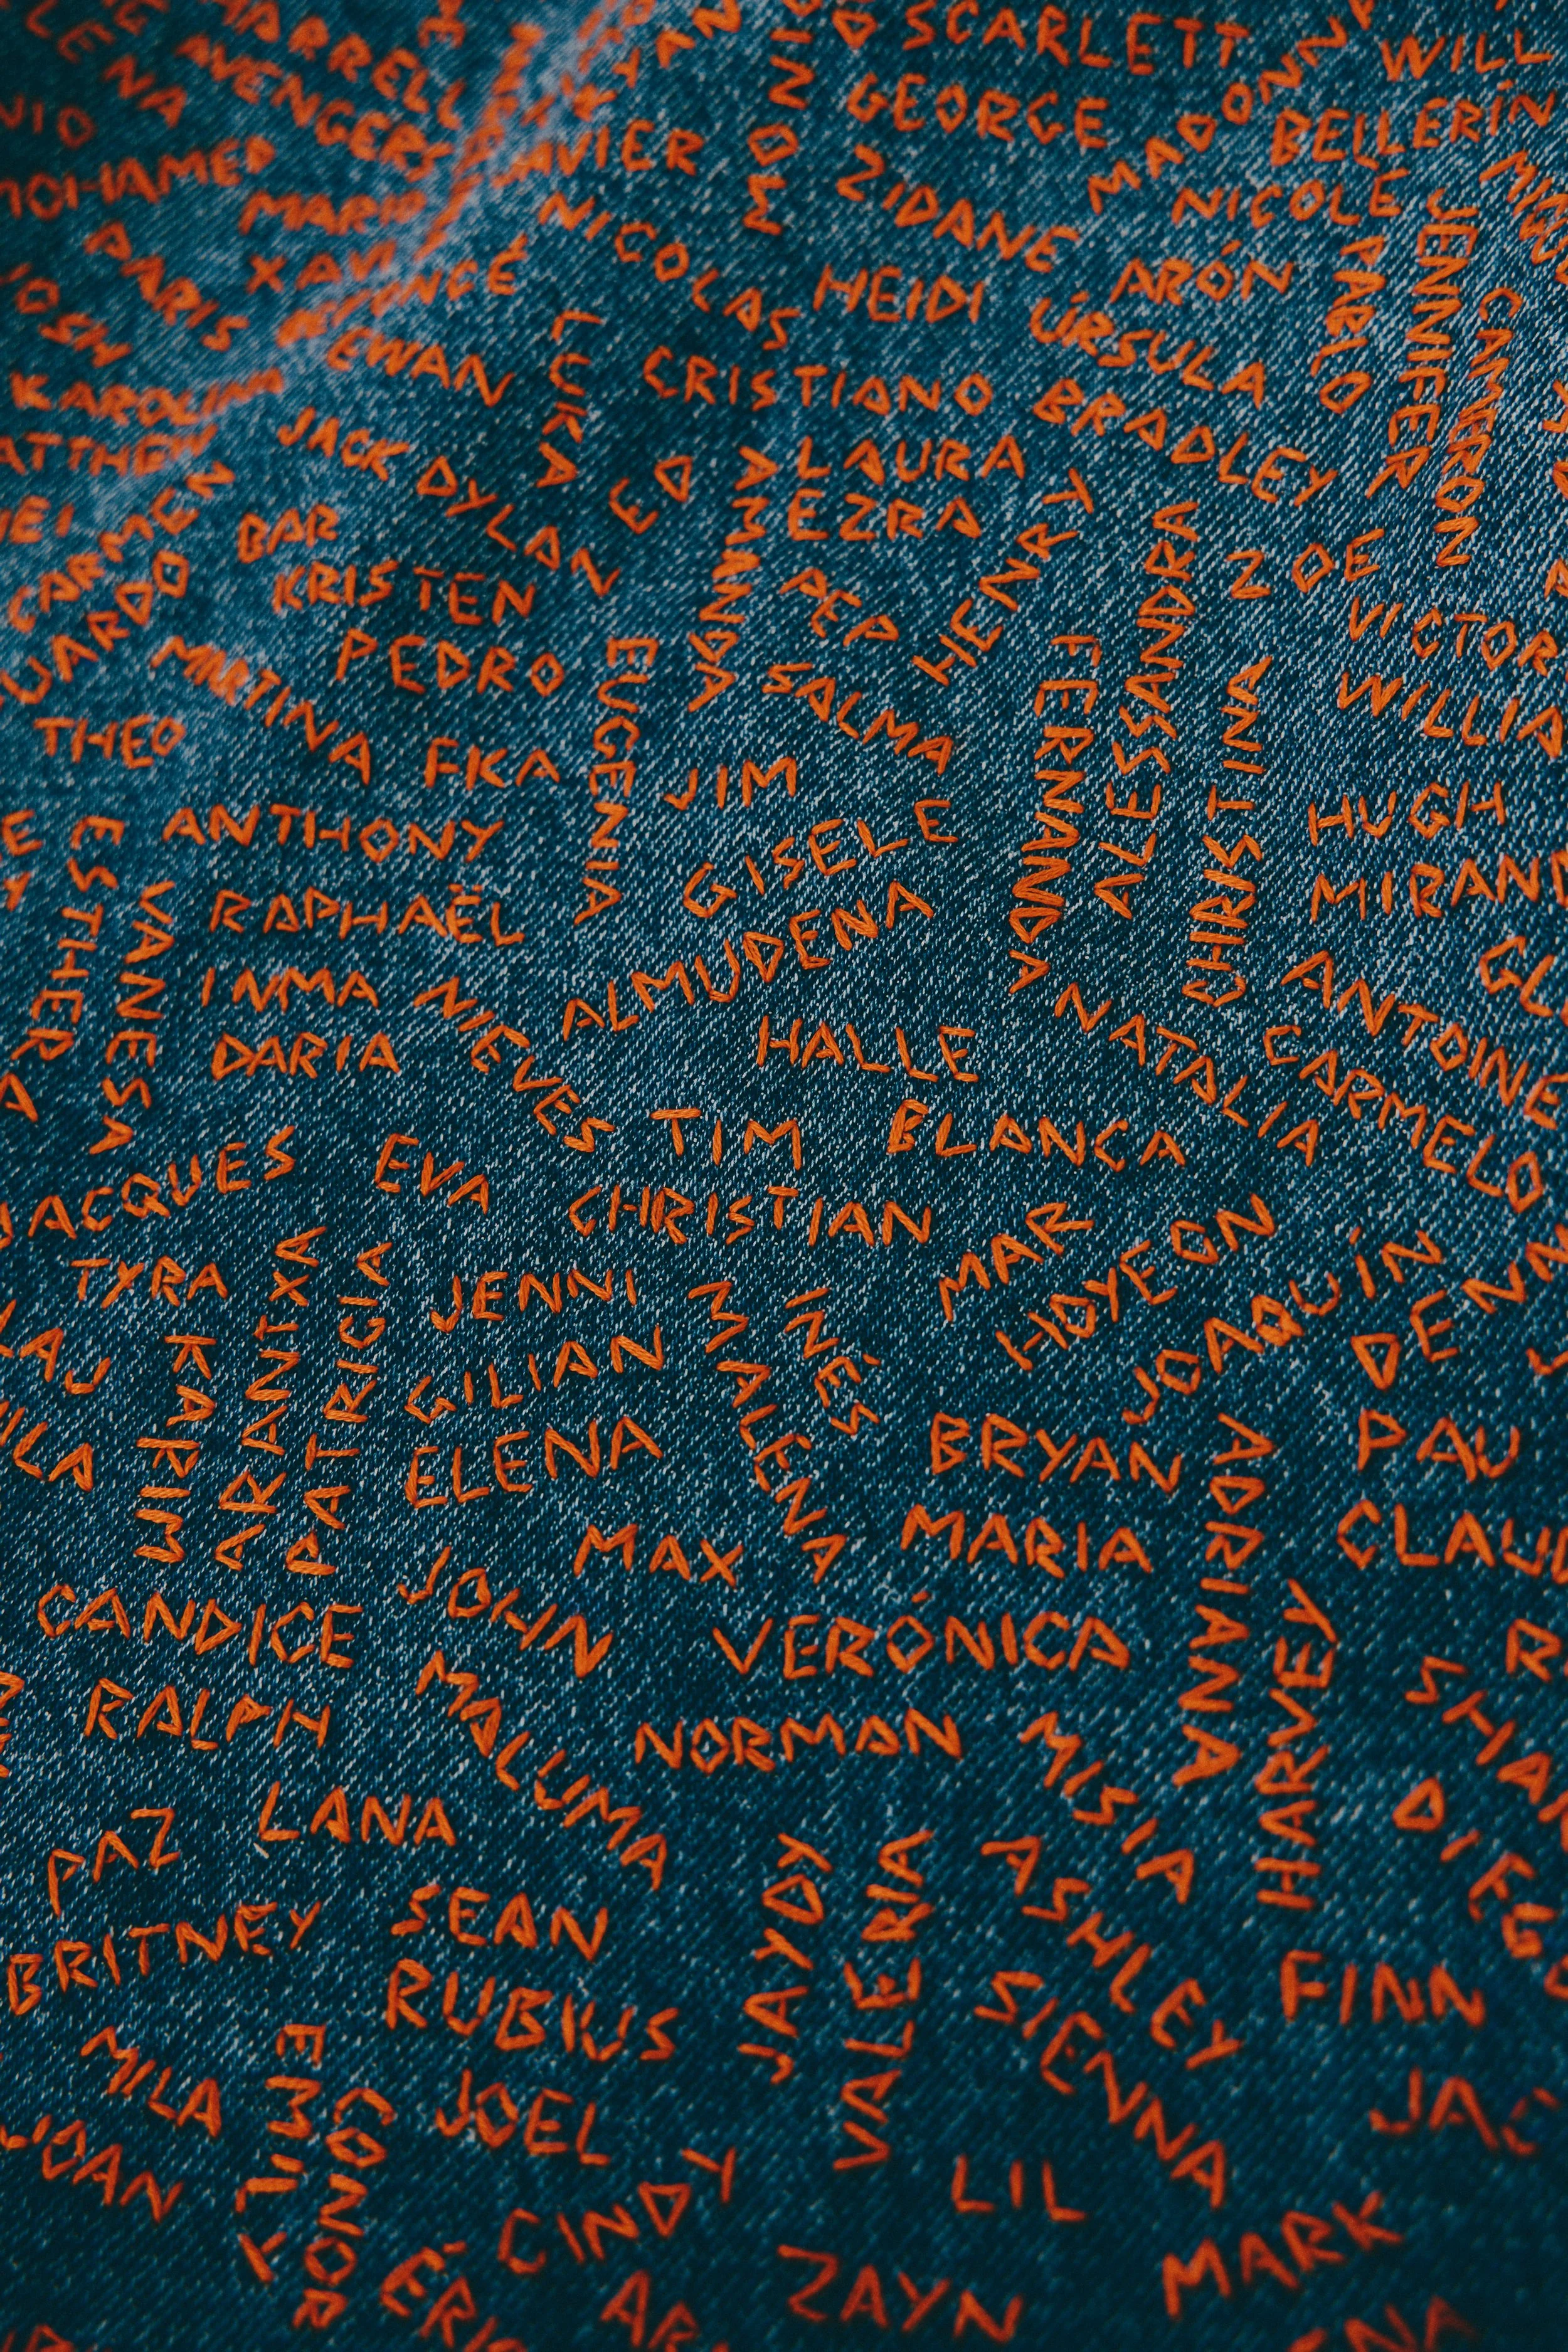 SCARLETT
WILL
LENA
AVENGERS
GEORGE
MADONNA
BELLERÍN
MOHAMED
MARIO
ZIDANE
NICOLE
PARIS
XAVI
NICOLAS
HEIDI
ARÓN
PABLO
JENNIFER
CAMERON
BEYONCÉ
EWAN
LUKA
CRISTIANO
ÚRSULA
BRADLEY
KAROLINA
JACK
DYLAN
ED
LAURA
EZRA
CARMEN
BAR
KRISTEN
PEP
HENAR
ALESSANDRA
ZOE
VICTOR
PEDRO
EUGENIA
SALMA
FERNANDA
CHRISTINA
MARTINA
THEO
FKA
JIM
ANTHONY
GISELE
HUGH
ESTHER
VANESA
RAPHAËL
ALMUDENA
INMA
NIEVES
DARIA
HALLE
NATALIA
ANTOINE
CARMELO
TIM
BLANCA
JACQUES
EVA
CHRISTIAN
MAR
HOYEON
JOAQUÍN
TYRA
KARIM
ARANTXA
PATRICIA
JENNI
GILIAN
ELENA
MALENA
INÉS
BRYAN
PAU
MAX
MARIA
ADRIANA
CANDICE
JOHN
VERÓNICA
HARVEY
RALPH
MALUMA
NORMAN
MISIA
PAZ
LANA
BRITNEY
SEAN
RUBIUS
JAYDY
VALERIA
ASHLEY
SIENNA
FINN
MILA
JOAN
EMILY
CONNOR
JOEL
CINDY
LIL
ZAYN
MARK